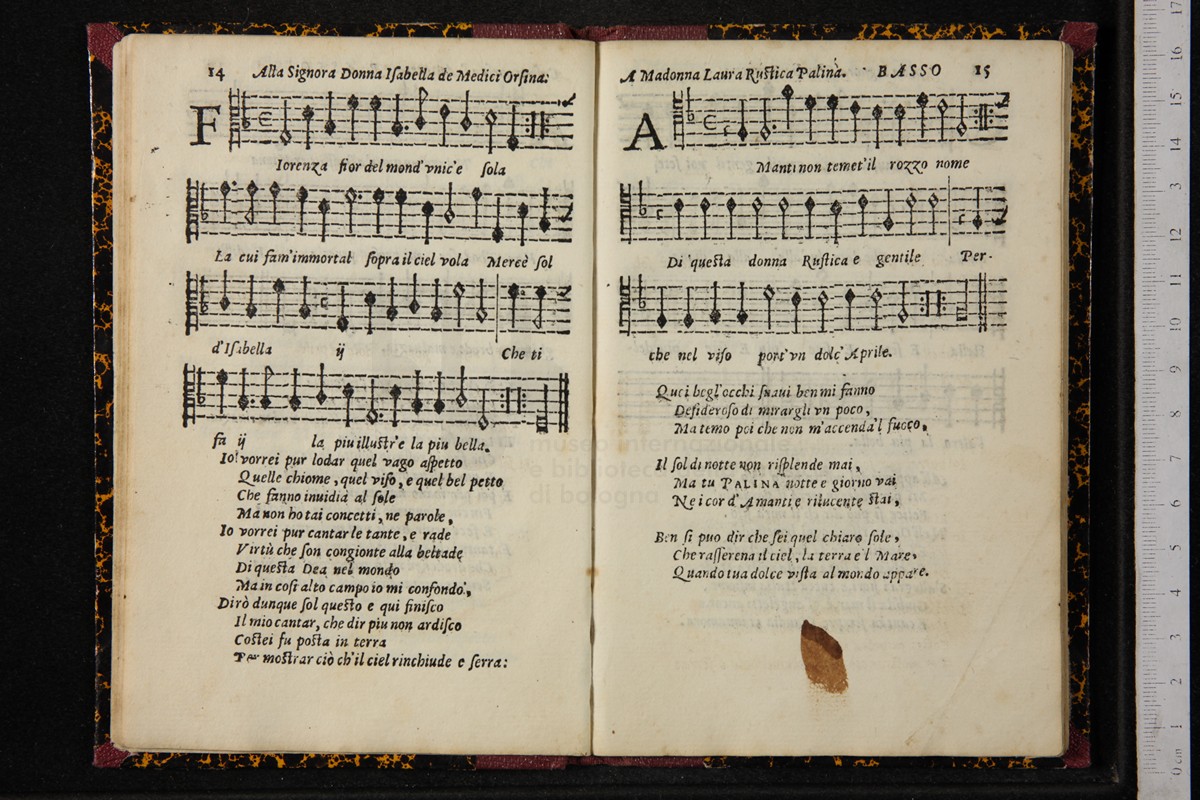 14 Alla Signora Donna Iſabella de Medici Orſina:
F
Iorenza fior del mond'vnic'e ſola
La cui fam'immortal ſopra il ciel vola Mercè ſol
d'Iſabella ij Che ti
fa ij la piu illuſtr'e la piu bella.
Io vorrei pur lodar quel vago aſpetto
Quelle chiome, quel viſo, e quel bel petto
Che fanno inuidia al ſole
Ma non ho tai concetti, ne parole,
Io vorrei pur cantar le tante, e rade
Virtù che ſon congionte alla beltade
Di queſta Dea nel mondo
Ma in coſi alto campo io mi confondo,
Dirò dunque ſol queſto e qui finiſco
Il mio cantar, che dir piu non ardiſco
Coſtei fu poſta in terra
Per moſtrar ciò ch'il ciel rinchiude e ſerra:
A Madonna Laura Ruſtica Palina. BASSO 15
A
Manti non temet'il rozzo nome
Di queſta donna Ruſtica e gentile Per-
che nel viſo port'vn dolc'Aprile.
Quei begl'occhi ſuaui ben mi fanno
Deſideroſo di mirargli vn poco,
Ma temo poi che non m'accenda'l fuoco,
Il ſol di notte non riſplende mai,
Ma tu PALINA notte e giorno vai
Ne i cor d'Amanti e rilucente ſtai,
Ben ſi puo dir che ſei quel chiaro ſole,
Che raſſerena il ciel, la terra e'l Mare,
Quando tua dolce viſta al mondo appare.
museo internazionale
e biblioteca
di bologna
0 cm 1 2 3 4 5 6 7 8 9 10 11 12 13 14 15 16 17